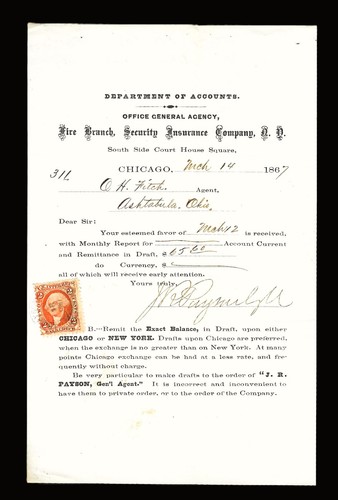 DEPARTMENT OF ACCOUNTS.
OFFICE GENERAL AGENCY,
Fire Branch, Security Insurance Company, N. Y.
South Side Court House Square,
CHICAGO, Mch 14 1867
311
O H. Fitch. Agent,
Ashtabula, Ohio.
Dear Sir:
Your esteemed favor of Mch 12 is received,
with Monthly Report for Account Current
and Remittance in Draft, $65 60
do Currency, $
all of which will receive early attention.
Yours truly,
J R Payson
B.—Remit the Exact Balance, in Draft, upon either
CHICAGO or NEW YORK. Drafts upon Chicago are preferred,
when the exchange is no greater than on New York. At many
points Chicago exchange can be had at a less rate, and fre-
quently without charge.
Be very particular to make drafts to the order of "J. R.
PAYSON, Gen'l Agent." It is incorrect and inconvenient to
have them to private order, or to the order of the Company.